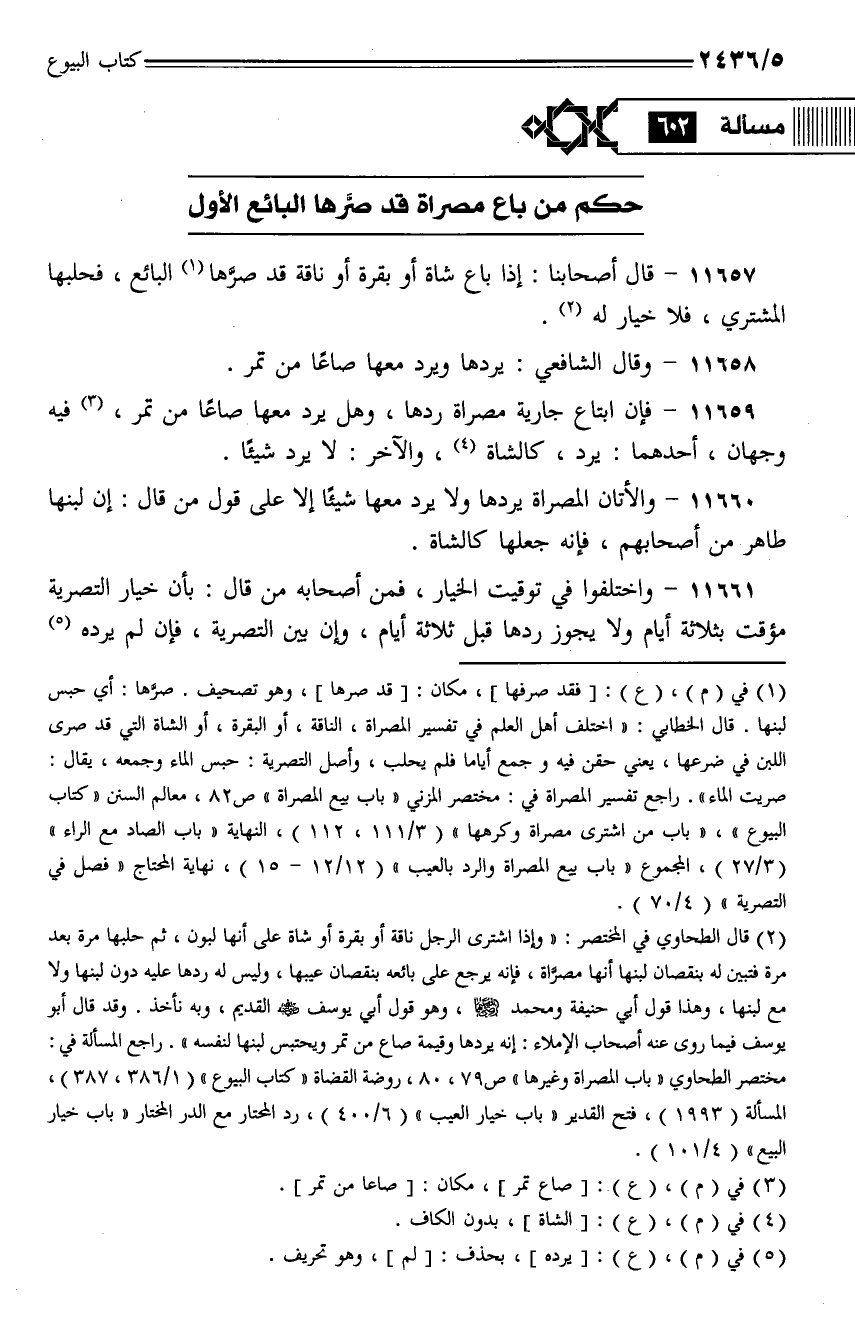 ٢٤٣٦/٥ كتاب البيوع
مسألة ٦٠٢
حكم من باع مصراة قد صرَّها البائع الأول
١١٦٥٧ – قال أصحابنا : إذا باع شاة أو بقرة أو ناقة قد صرَّها (١) البائع ، فحلبها
المشتري ، فلا خيار له (٢) .
١١٦٥٨ – وقال الشافعي : يردها ويرد معها صاعًا من تمر .
١١٦٥٩ – فإن ابتاع جارية مصراة ردها ، وهل يرد معها صاعًا من تمر ، (٣) فيه
وجهان ، أحدهما : يرد ، كالشاة (٤) ، والآخر : لا يرد شيئًا .
١١٦٦٠ – والأتان المصراة يردها ولا يرد معها شيئًا إلا على قول من قال : إن لبنها
طاهر من أصحابهم ، فإنه جعلها كالشاة .
١١٦٦١ – واختلفوا في توقيت الخيار ، فمن أصحابه من قال : بأن خيار التصرية
مؤقت بثلاثة أيام ولا يجوز ردها قبل ثلاثة أيام ، وإن بين التصرية ، فإن لم يرده (٥)
(١) في ( م ) ، ( ع ) : [ فقد صرفها ] ، مكان : [ قد صرها ] ، وهو تصحيف . صرَّها : أي حبس
لبنها . قال الخطابي : « اختلف أهل العلم في تفسير المصراة ، الناقة ، أو البقرة ، أو الشاة التي قد صرى
اللبن في ضرعها ، يعني حقن فيه و جمع أياما فلم يحلب ، وأصل التصرية : حبس الماء وجمعه ، يقال :
صريت الماء» . راجع تفسير المصراة في : مختصر المزني « باب بيع المصراة » ص٨٢ ، معالم السنن « كتاب
البيوع » ، « باب من اشترى مصراة وكرهها » ( ١١١/٣ ، ١١٢ ) ، النهاية « باب الصاد مع الراء »
( ٢٧/٣ ) ، المجموع « باب بيع المصراة والرد بالعيب » ( ١٢/١٢ – ١٥ ) ، نهاية المحتاج « فصل في
التصرية » ( ٧٠/٤ ) .
(٢) قال الطحاوي في المختصر : « وإذا اشترى الرجل ناقة أو بقرة أو شاة على أنها لبون ، ثم حلبها مرة بعد
مرة فتبين له بنقصان لبنها أنها مصرَّاة ، فإنه يرجع على بائعه بنقصان عيبها ، وليس له ردها عليه دون لبنها ولا
مع لبنها ، وهذا قول أبي حنيفة ومحمد ، وهو قول أبي يوسف القديم ، وبه نأخذ . وقد قال أبو
يوسف فيما روى عنه أصحاب الإملاء : إنه يردها وقيمة صاع من تمر ويحتبس لبنها لنفسه » . راجع المسألة في :
مختصر الطحاوي « باب المصراة وغيرها » ص٧٩ ، ٨٠ ، روضة القضاة « كتاب البيوع » ( ٣٨٦/١ ، ٣٨٧ ) ،
المسألة ( ١٩٩٣ ) ، فتح القدير « باب خيار العيب » ( ٤٠٠/٦ ) ، رد المحتار مع الدر المختار « باب خيار
البيع» ( ١٠١/٤ ) .
(٣) في ( م ) ، ( ع ) : [ صاع تمر ] ، مكان : [ صاعا من تمر ] .
(٤) في ( م ) ، ( ع ) : [ الشاة ] ، بدون الكاف .
(٥) في ( م ) ، ( ع ) : [ يرده ] ، بحذف : [ لم ] ، وهو تحريف .